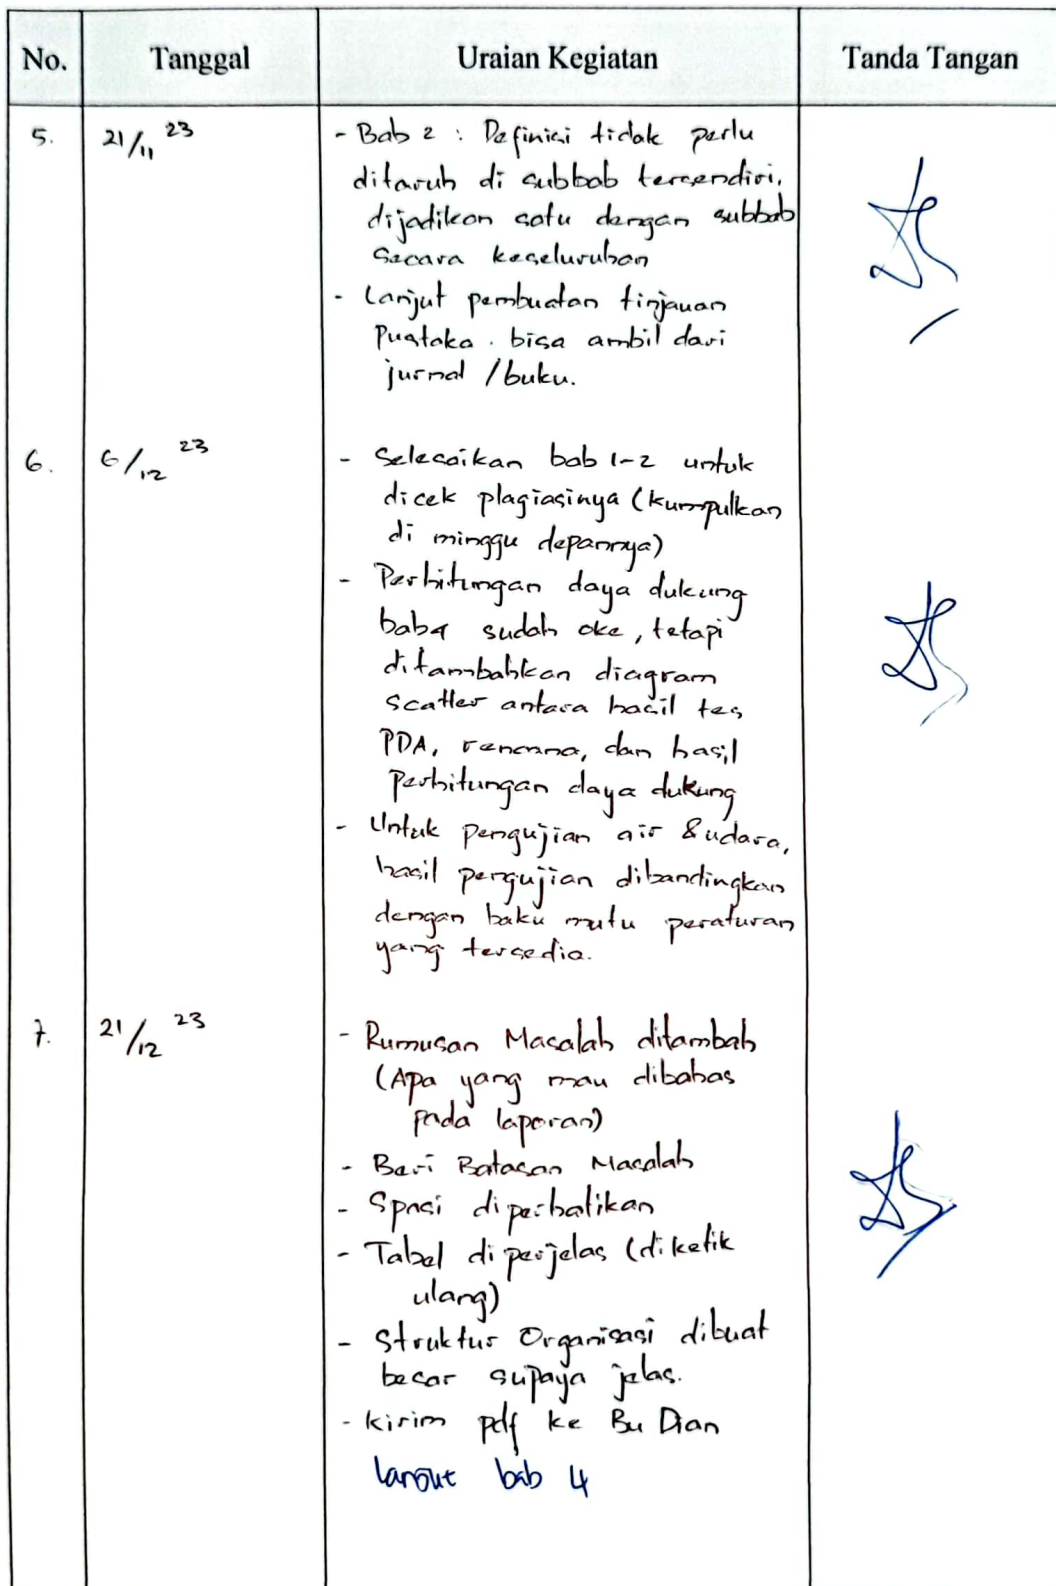 No. Tanggal Uraian Kegiatan Tanda Tangan
5. 21/11 23 - Bab 2 : Definisi tidak perlu
ditaruh di subbab tersendiri,
dijadikan satu dengan subbab
secara keseluruhan
- Lanjut pembuatan tinjauan
Pustaka . bisa ambil dari
jurnal / buku.
6. 6/12 23 - Selesaikan bab 1-2 untuk
dicek plagiasinya (kumpulkan
di minggu depannya)
- Perhitungan daya dukung
bab4 sudah oke, tetapi
ditambahkan diagram
scatter antara hasil tes
PDA, rencana, dan hasil
Perhitungan daya dukung
- Untuk pengujian air & udara,
hasil pengujian dibandingkan
dengan baku mutu peraturan
yang tersedia.
7. 21/12 23 - Rumusan Masalah ditambah
(Apa yang mau dibahas
pada laporan)
- Beri Batasan Masalah
- Spasi diperhatikan
- Tabel diperjelas (diketik
ulang)
- Struktur Organisasi dibuat
besar supaya jelas.
- Kirim pdf ke Bu Dian
lanjut bab 4